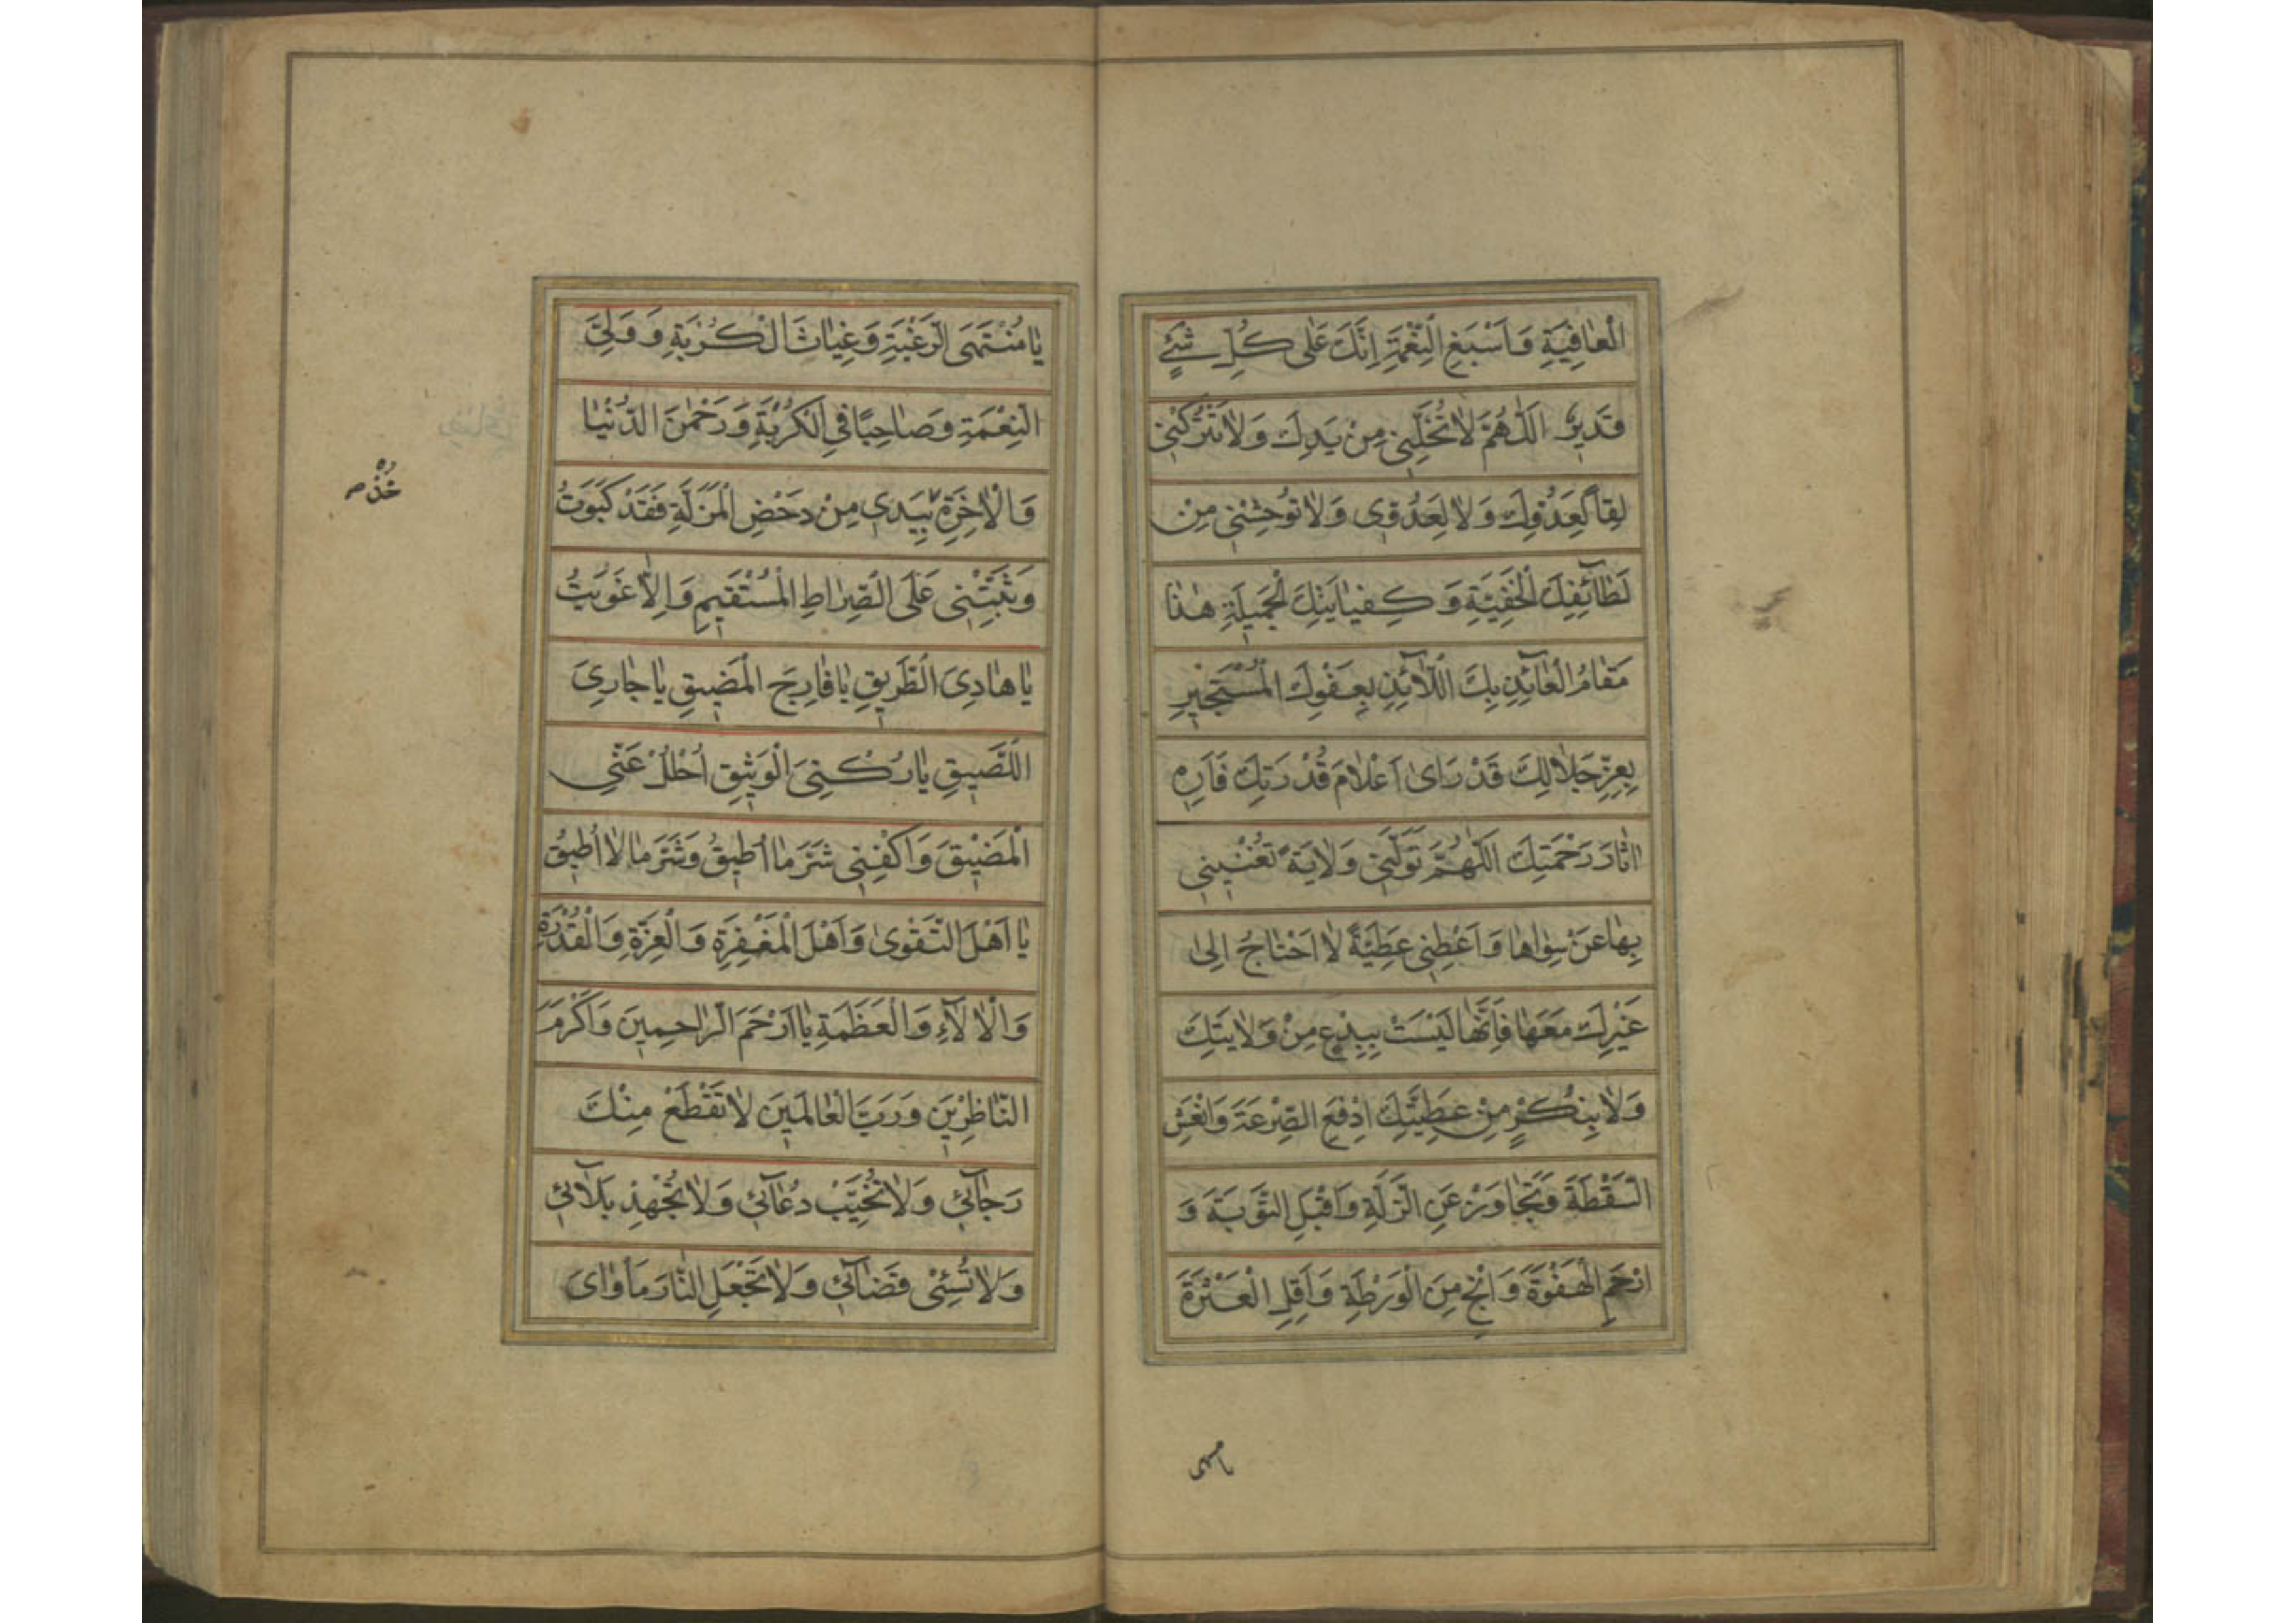 الْعَافِيَةِ وَاَسْبَغِ النِّعْمَةِ اِنَّكَ عَلٰى كُلِّ شَئٍ
قَدِيرٌ اَللّٰهُمَّ لَاتُخَلِّنِى مِنْ يَدِكَ وَلَاتَتْرُكْنِى
لِقًا لِعَدُوِّكَ وَلَا لِعَدُوِّى وَلَاتُوحِشْنِى مِنْ
لَطَائِفِكَ الْخَفِيَّةِ وَكِفَايَتِكَ الْجَمِيلَةِ هٰذَا
مَقَامُ الْعَائِذِ بِكَ اللَّائِذِ بِعَفْوِكَ الْمُسْتَجِيرِ
بِعِزِّ جَلَالِكَ قَدْ رَاىٰ اَعْلَامَ قُدْرَتِكَ فَاَرِهِ
اٰثَارَ رَحْمَتِكَ اَللّٰهُمَّ تَوَلَّنِى وَلَايَةً تُغْنِينِى
بِهَا عَنْ سِوَاهَا وَاَعْطِنِى عَطِيَّةً لَا اَحْتَاجُ اِلىٰ
غَيْرِكَ مَعَهَا فَاِنَّهَا لَيْسَتْ بِبِدْعٍ مِنْ وَلَايَتِكَ
وَلَابِنُكْرٍ مِنْ عَطِيَّتِكَ اِدْفَعِ الصِّرْعَةَ وَانْعَشِ
السَّقْطَةَ وَتَجَاوَزْ عَنِ الزَّلَّةِ وَاقْبَلِ التَّوْبَةَ وَ
ارْحَمِ الْهَفْوَةَ وَانْجِ مِنَ الْوَرْطَةِ وَاَقِلِ الْعَثْرَةَ
يامنتهى
يَا مُنْتَهَى الرَّغْبَةِ وَغِيَاثَ الْكُرْبَةِ وَ وَلِىَّ
النِّعْمَةِ وَصَاحِبًا فِى الْكُرْبَةِ وَرَحْمٰنَ الدُّنْيَا
وَالْاٰخِرَةِ بِيَدِى مِنْ دَحْضِ الْمَزَلَّةِ فَقَدْ كَبَوْتُ
خُذْ
وَثَبِّتْنِى عَلَى الصِّرَاطِ الْمُسْتَقِيمِ وَاِلَّا غَوَيْتُ
يَا هَادِىَ الطَّرِيقِ يَا فَارِجَ الْمَضِيقِ يَا جَارِىَ
اللَّصِيقِ يَا رُكْنِىَ الْوَثِيقِ اُحْلُلْ عَنِّى
الْمَضِيقَ وَاكْفِنِى شَرَّ مَا اُطِيقُ وَشَرَّ مَا لَا اُطِيقُ
يَا اَهْلَ التَّقْوىٰ وَاَهْلَ الْمَغْفِرَةِ وَالْعِزَّةِ وَالْقُدْرَةِ
وَالْاٰلَآءِ وَالْعَظَمَةِ يَا اَرْحَمَ الرَّاحِمِينَ وَاَكْرَمَ
النَّاظِرِينَ وَرَبَّ الْعَالَمِينَ لَاتَقْطَعْ مِنْكَ
رَجَآئِى وَلَاتُخَيِّبْ دُعَآئِى وَلَاتُجْهِدْ بَلَآئِى
وَلَاتُسِئْ قَضَآئِى وَلَاتَجْعَلِ النَّارَ مَاْوَاىَ